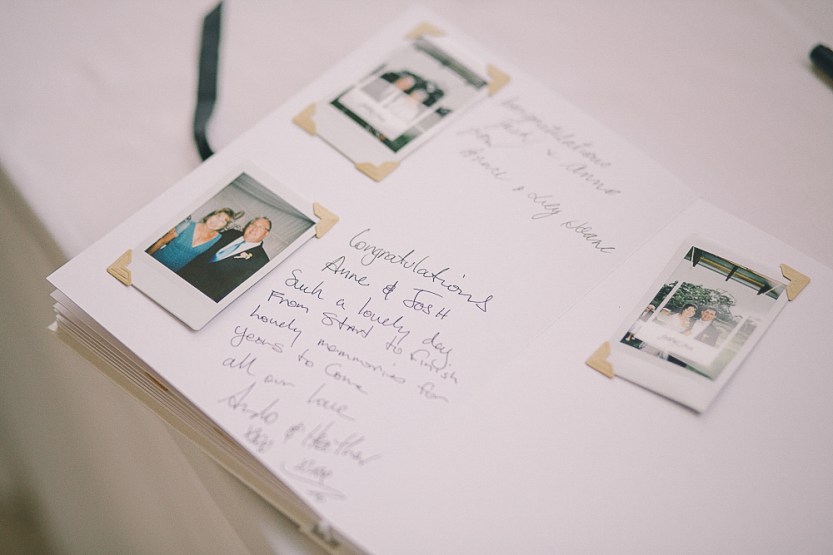 Congratulations
Josh & Anne
Grace & Lily Deane
Congratulations
Anne & Josh
Such a lovely day
From Start to finish
Lovely memmories for
years to Come
all our love
& Heather